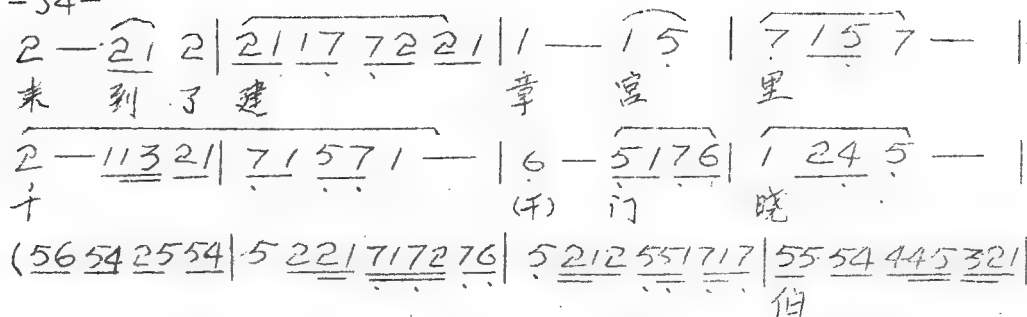 -54-
2 — 21 2 | 21 17 72 21 | 1 — 1 5 | 7 15 7 — |
来 到 了 建 章 宫 里
2 — 113 21 | 71 57 1 — | 6 — 51 76 | 1 24 5 — |
千 (千) 门 晓
(56 54 25 54 | 5 221 7172 76 | 5 212 551 717 | 55 54 445 321 |
伯